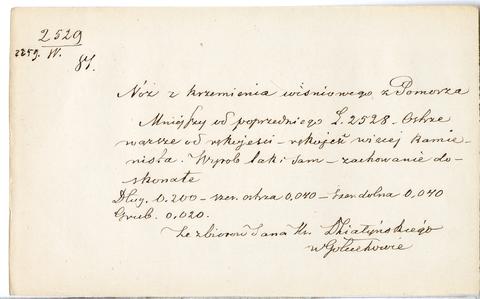 2529
2259. W.
87.
Nóż z krzemienia wiśniowego z Pomorza
Mniejszy od poprzedniego L. 2528 – Ostrze
warsze od rękojeści – rękojeść więcej kamie-
nista. Wyrob taki sam – zachowanie do-
skonałe
Dług. 0.200 – szer. ostrza 0,040 – Szer. dolna 0,040
Grub. 0,020.
Ze zbiorów Jana Hr. Działyńskiego
w Gołuchowie